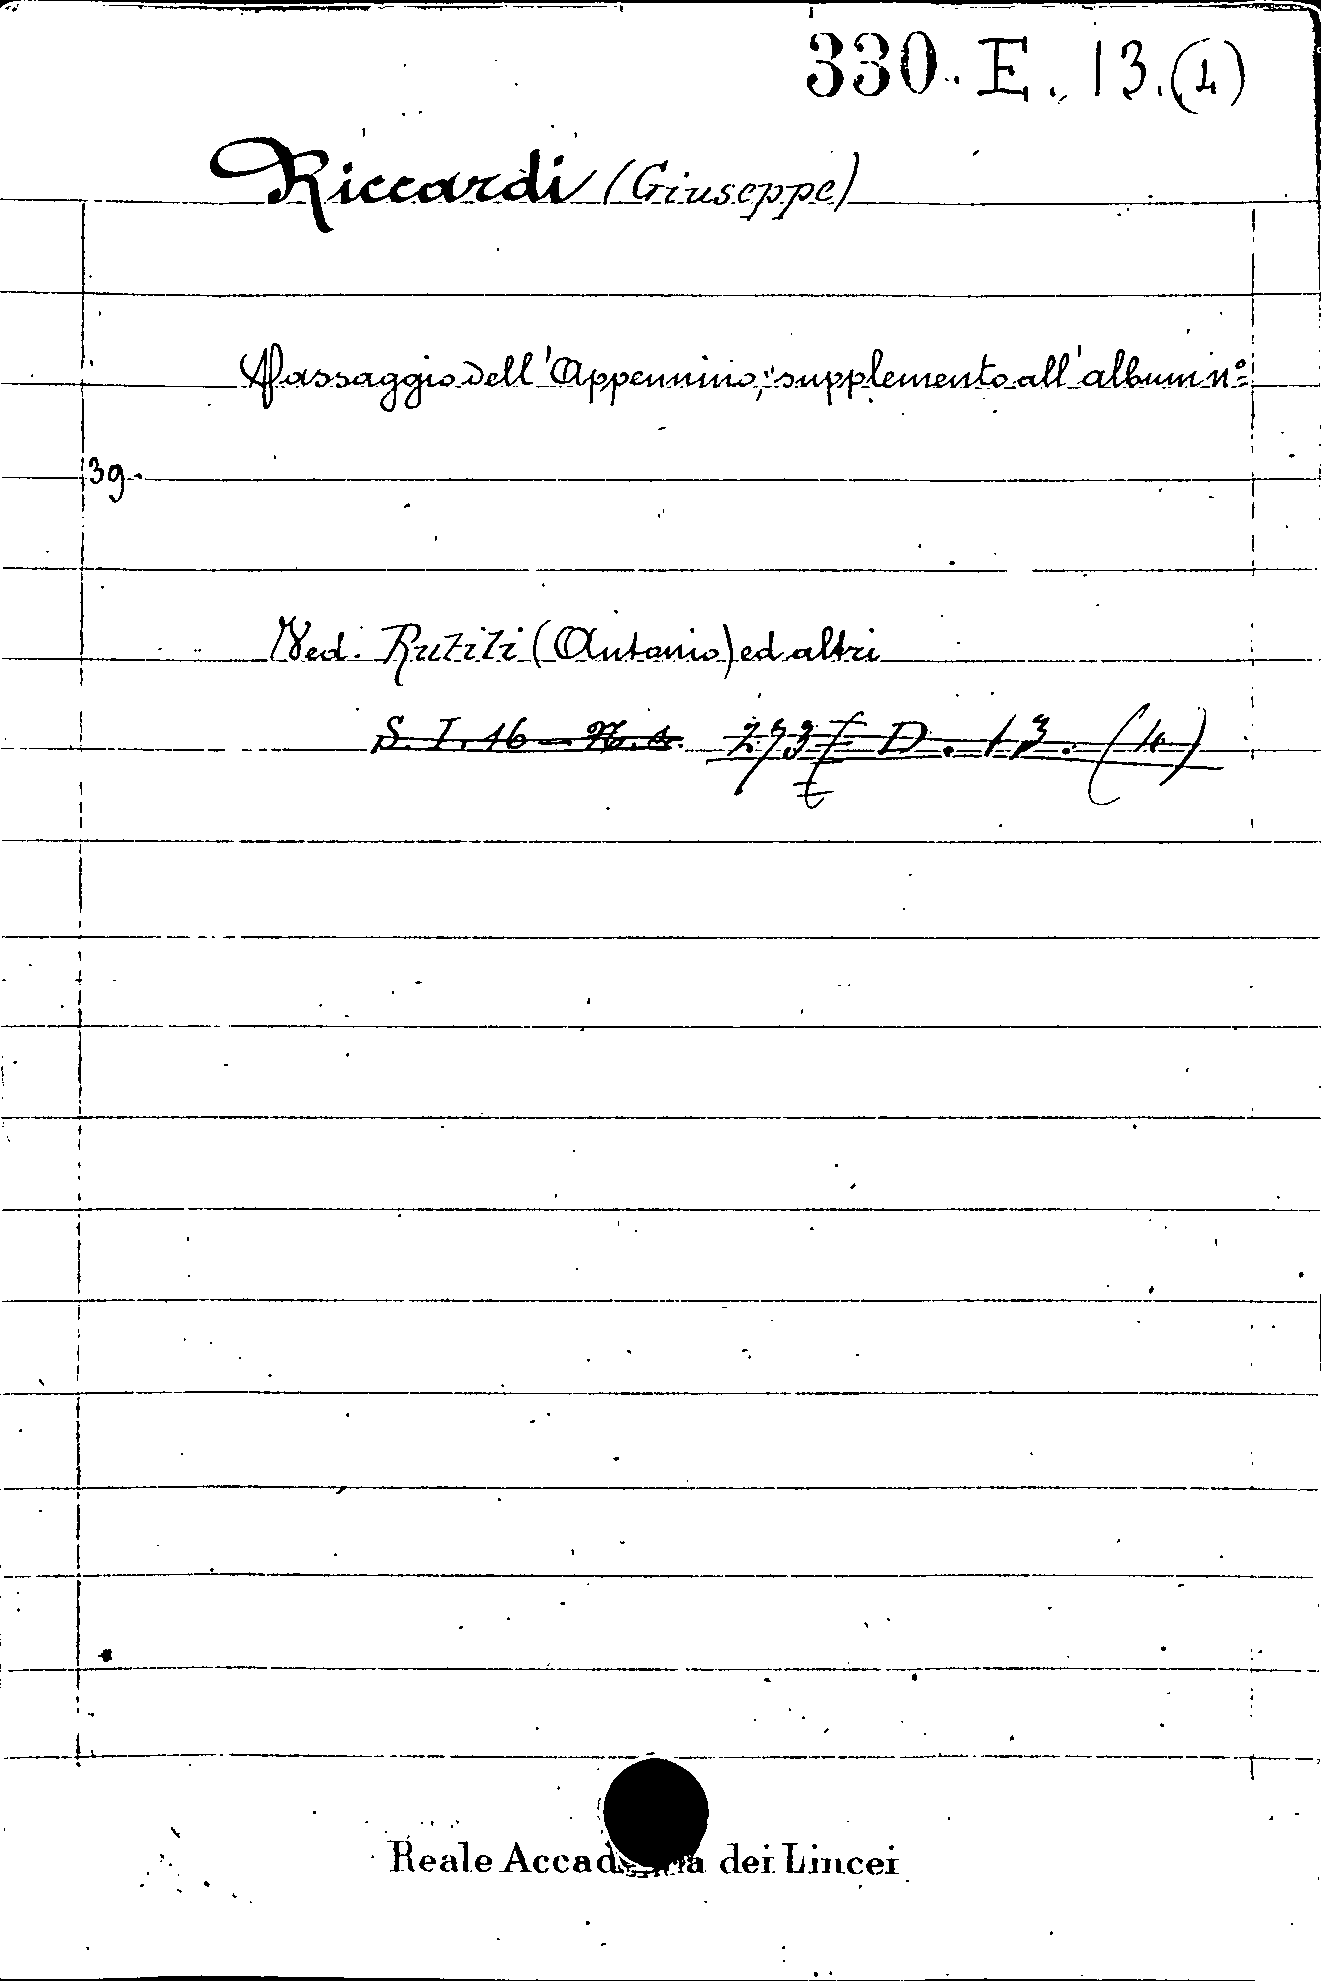 330. E. 13. (4)
Riccardi (Giuseppe)
Passaggio dell'Appennino, supplemento all'album nº
39.
Ved. Rutili (Antonio) ed altri
S. I. 16 - 273 D. 13. (4)
Reale Accad dei Lincei